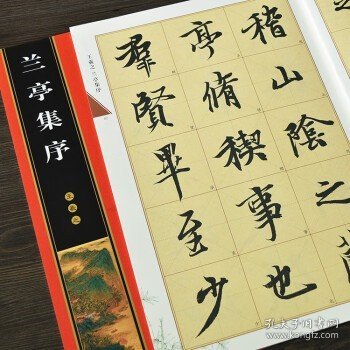 兰亭集序
王羲之
王羲之 兰亭集序
稽山陰之蘭
亭脩稧事也
羣賢畢至少
孔夫子旧书网